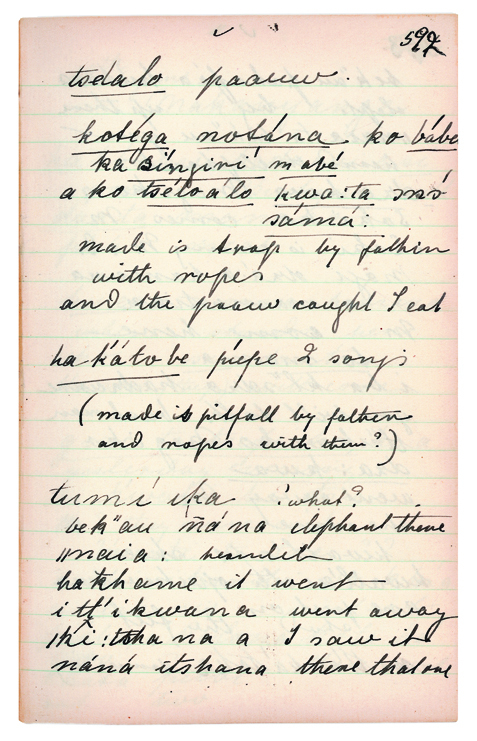 597
tsdalo paauw.
kotéga notána ko bába
ka síngini mabé
a ko tséloalo kwa:ta
sámá
made is trap by father
with ropes
and the paauw caught I eat
hakátobe piepe 2 songs
(made is pitfall by father
and ropes with them?)
tumí ika ? what?
bek"au ñána elephant there
//naia:
hakhame it went
i tl'ikwana went away
a I saw it
náná itshana there that one